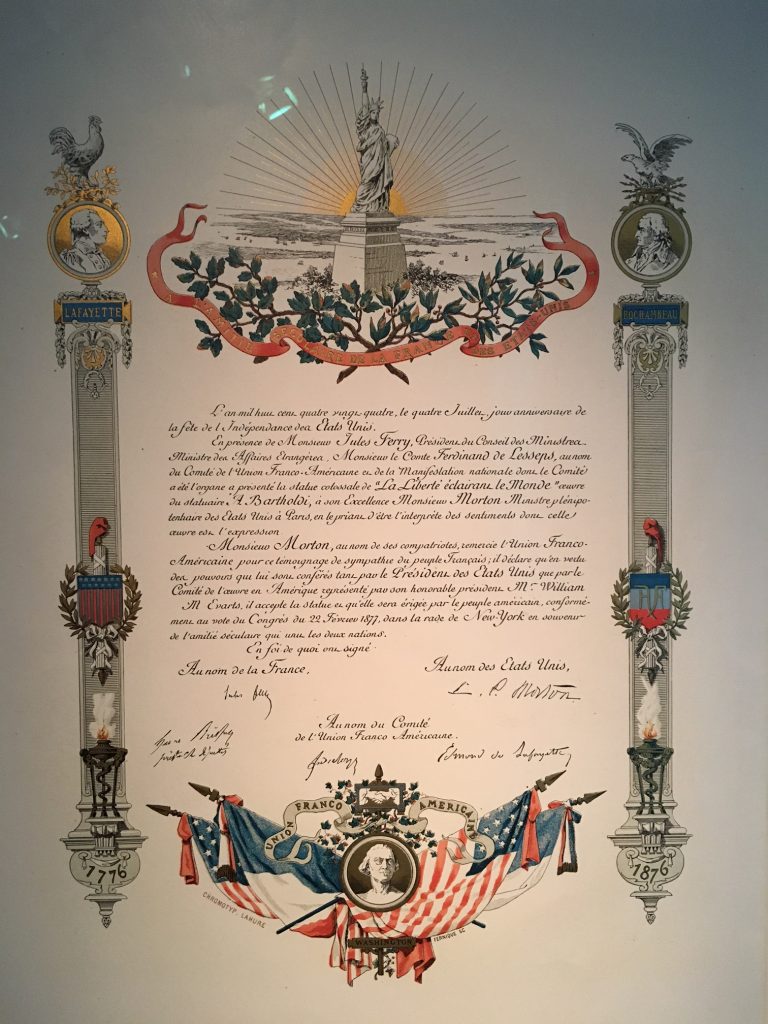 LAFAYETTE
ROCHAMBEAU
SÉCULAIRE DE LA FRANCE
DES ETATS-UNIS
L'an mil huit cent quatre vingt quatre, le quatre Juillet, jour anniversaire de
la fête de l'Indépendance des Etats Unis.
En présence de Monsieur Jules Ferry, Président du Conseil des Ministres
Ministre des Affaires Etrangères, Monsieur le Comte Ferdinand de Lesseps, au nom
du Comité de l'Union Franco-Américaine et de la Manifestation nationale dont le Comité
a été l'organe a présenté la statue colossale de "La Liberté éclairant le Monde" œuvre
du statuaire A Bartholdi, à son Excellence Monsieur Morton Ministre plénipo-
tentiaire des Etats Unis à Paris, en le priant d'être l'interprète des sentiments dont cette
œuvre est l'expression
Monsieur Morton, au nom de ses compatriotes, remercie l'Union Franco-
Américaine pour ce témoignage de sympathie du peuple Français; il déclare qu'en vertu
des pouvoirs qui lui sont conférés tant par le Président des Etats Unis que par le
Comité de l'œuvre en Amérique représenté par son honorable président Mr. William
M Evarts, il accepte la statue et qu'elle sera érigée par le peuple américain, conformé-
ment au vote du Congrès du 22 Février 1877, dans la rade de New-York en souvenir
de l'amitié séculaire qui unit les deux nations.
En foi de quoi ont signé
Au nom de la France,
Au nom des Etats Unis,
Jules Ferry
L. P. Morton
Au nom du Comité
de l'Union Franco Américaine.
Edmond de Lafayette
UNION FRANCO AMERICAINE
1776
1876
CHROMOTYP. LAHURE
WASHINGTON
FERNIQUE SC